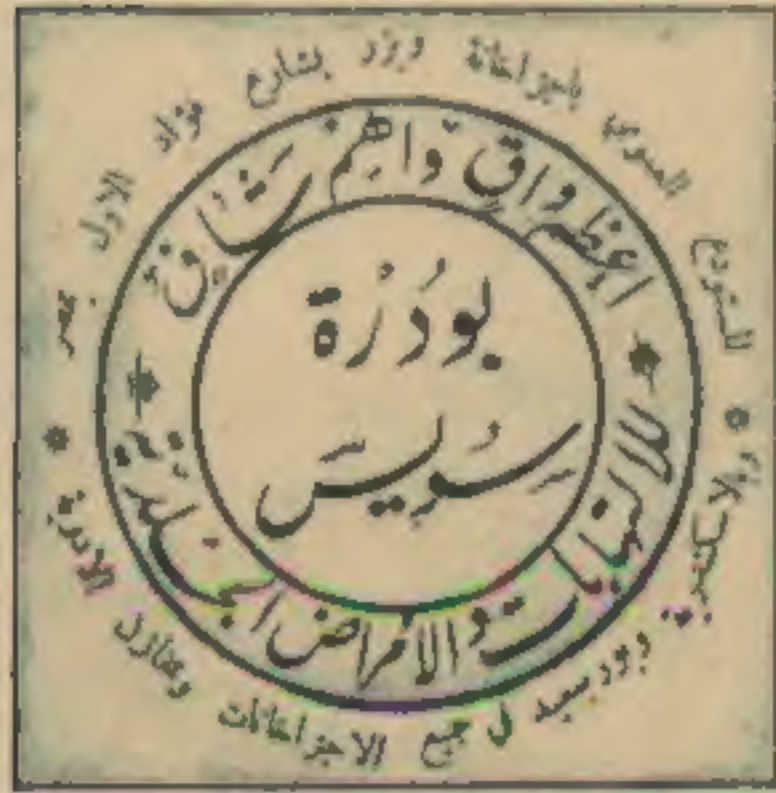 بودرة
سويس
اعظم واق واهم شاف
للالتهابات والأمراض الجلدية
المستودع العمومي باجزاخانة بشارع فؤاد الاول بمصر
وبالاسكندرية وبورسعيد في جميع الاجزاخانات ومخازن الادوية